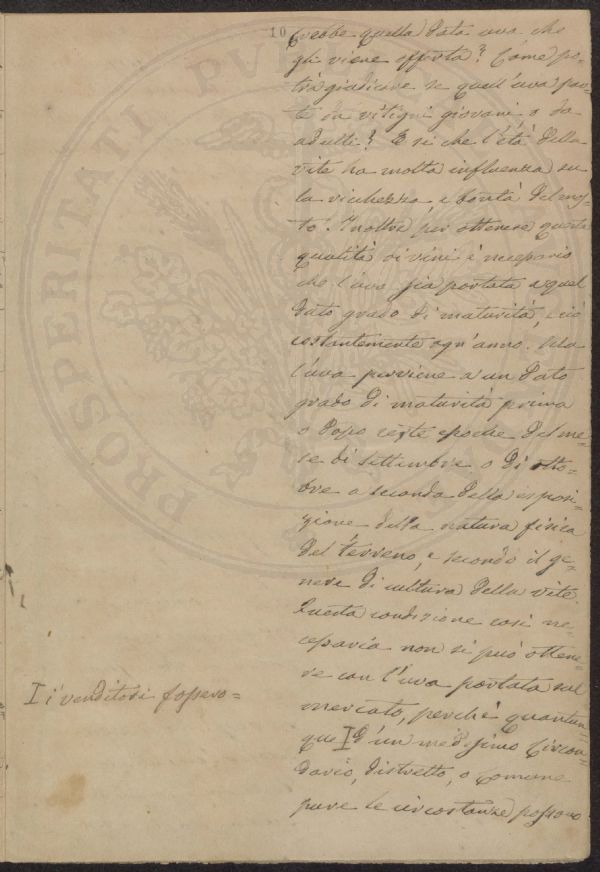 10
crebbe quella data uva che
gli viene offerta? Come po=
trà giudicare se quell'uva par=
te da vitigni giovani, o da
adulti? E sì che l'età della
vite ha molta influenza su
la ricchezza, e bontà del mos=
to. Inoltre per ottenere questa
qualità di vini è necessario
che l'uva sia portata a quel
dato grado di maturità, e ciò
costantemente ogn'anno. Ma
l'uva perviene a un dato
grado di maturità prima
o dopo certe epoche del me=
se di Settembre o di otto=
bre a seconda della esposi=
zione della natura fisica
del terreno, e secondo il ge=
nere di cultura della vite.
Questa condizione così ne=
cessaria non si può ottene=
re con l'uva portata sul
mercato, perchè quantun=
que I d'un medesimo Circon=
dario, distretto, o Comune
pure le circostanze possono
I i venditori fossero=
PROSPERITATI PVBLICAE